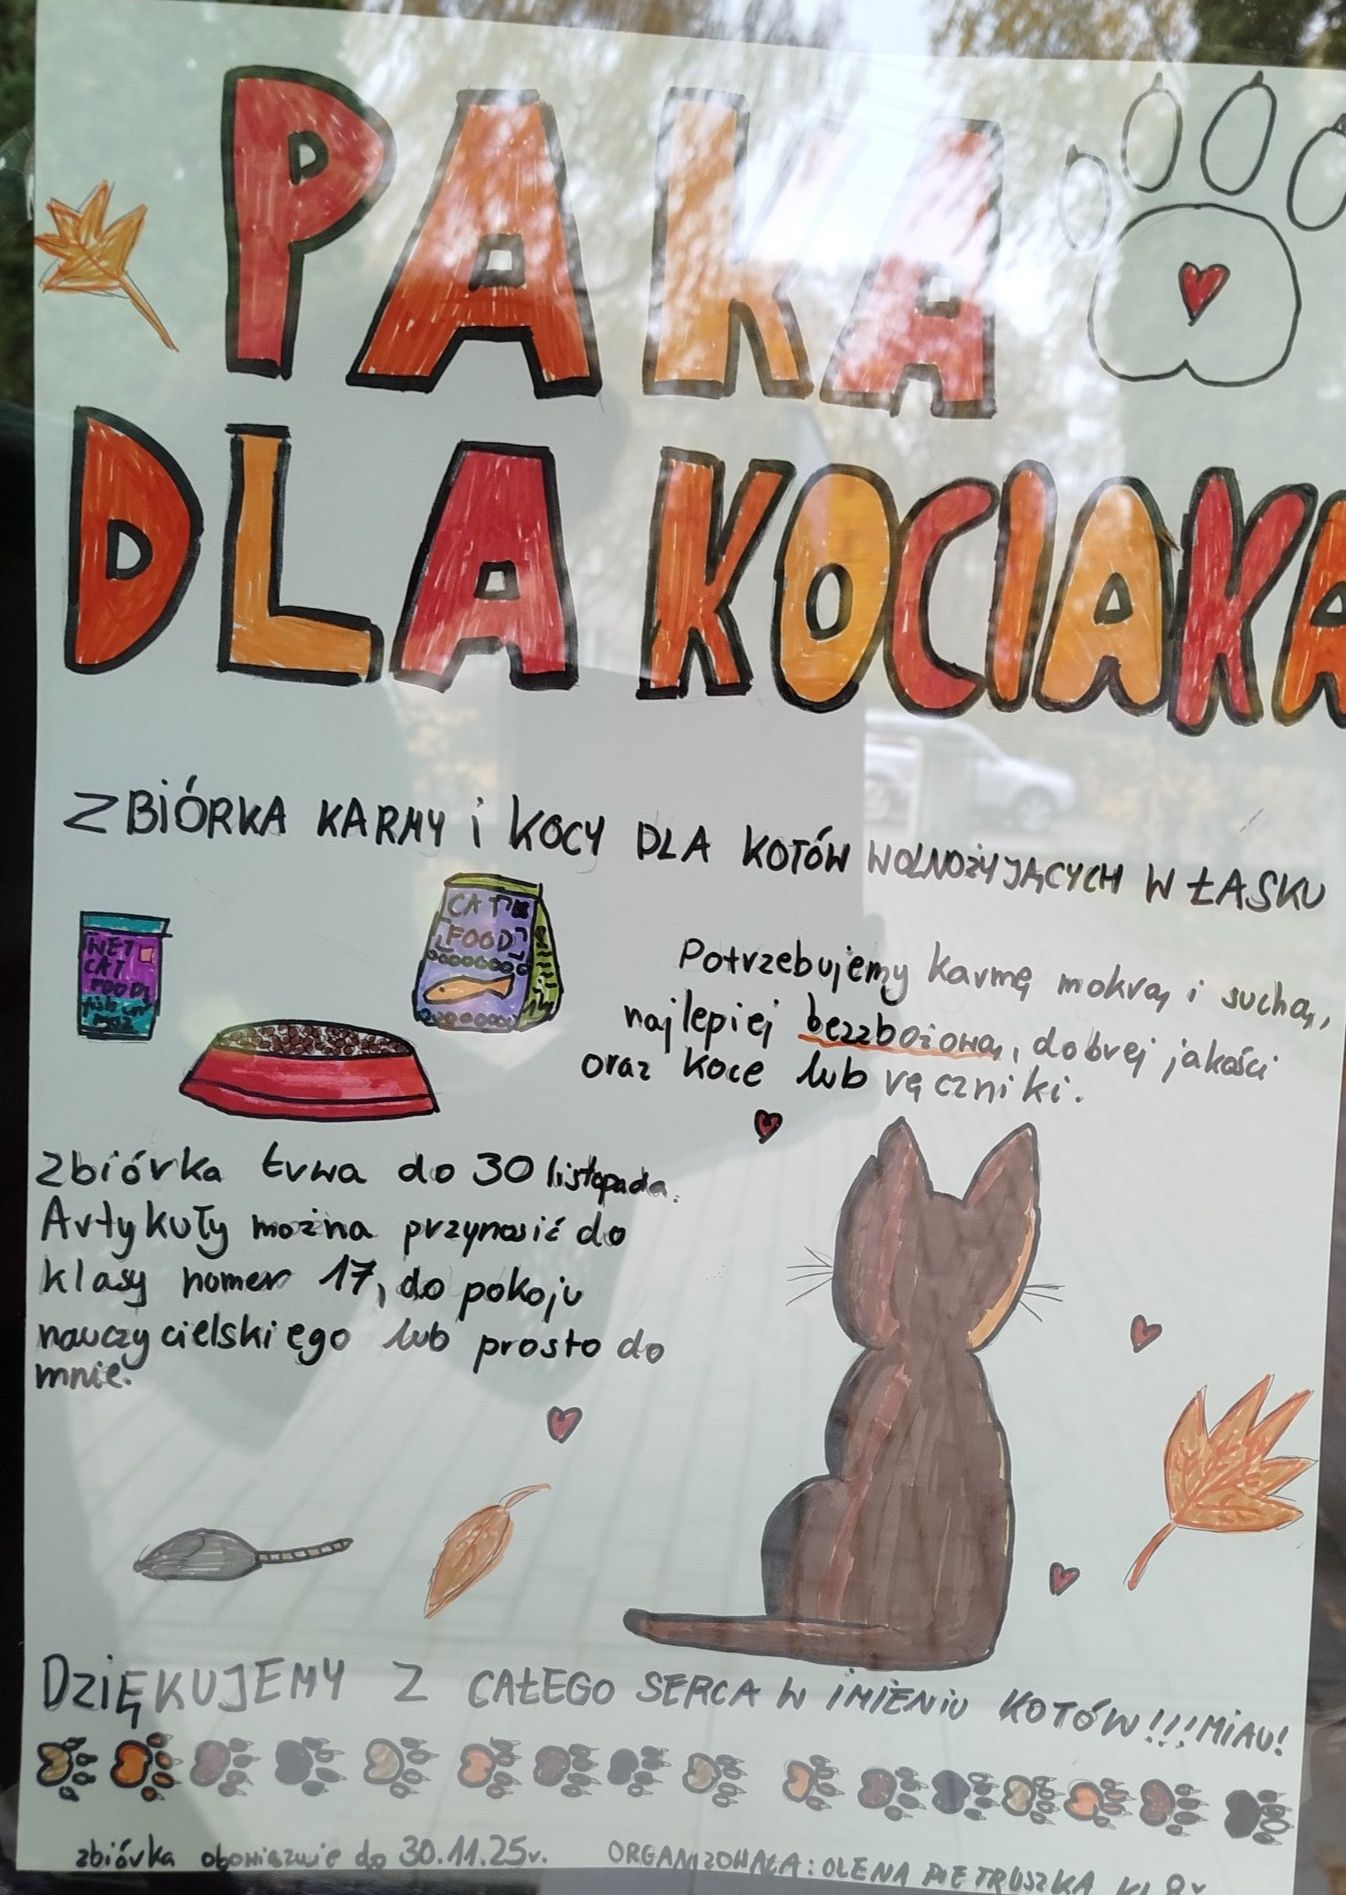 PAKA
DLA KOCIAKA
ZBIÓRKA KARMY i KOCY DLA KOTÓW WOLNOŻYJĄCYCH W ŁASKU
WET
CAT
FOOD
CAT
FOOD
Potrzebujemy karmę mokrą i suchą,
najlepiej bezzbożową, dobrej jakości
oraz koce lub ręczniki.
Zbiórka trwa do 30 listopada.
Artykuły można przynosić do
klasy nomer 17, do pokoju
nauczycielskiego lub prosto do
mnie.
DZIĘKUJEMY Z CAŁEGO SERCA W IMIENIU KOTÓW!!!MIAU!
zbiórka obowiązuje do 30.11.25r. ORGANIZOWAŁA: OLENA PIETRUSZKA KL